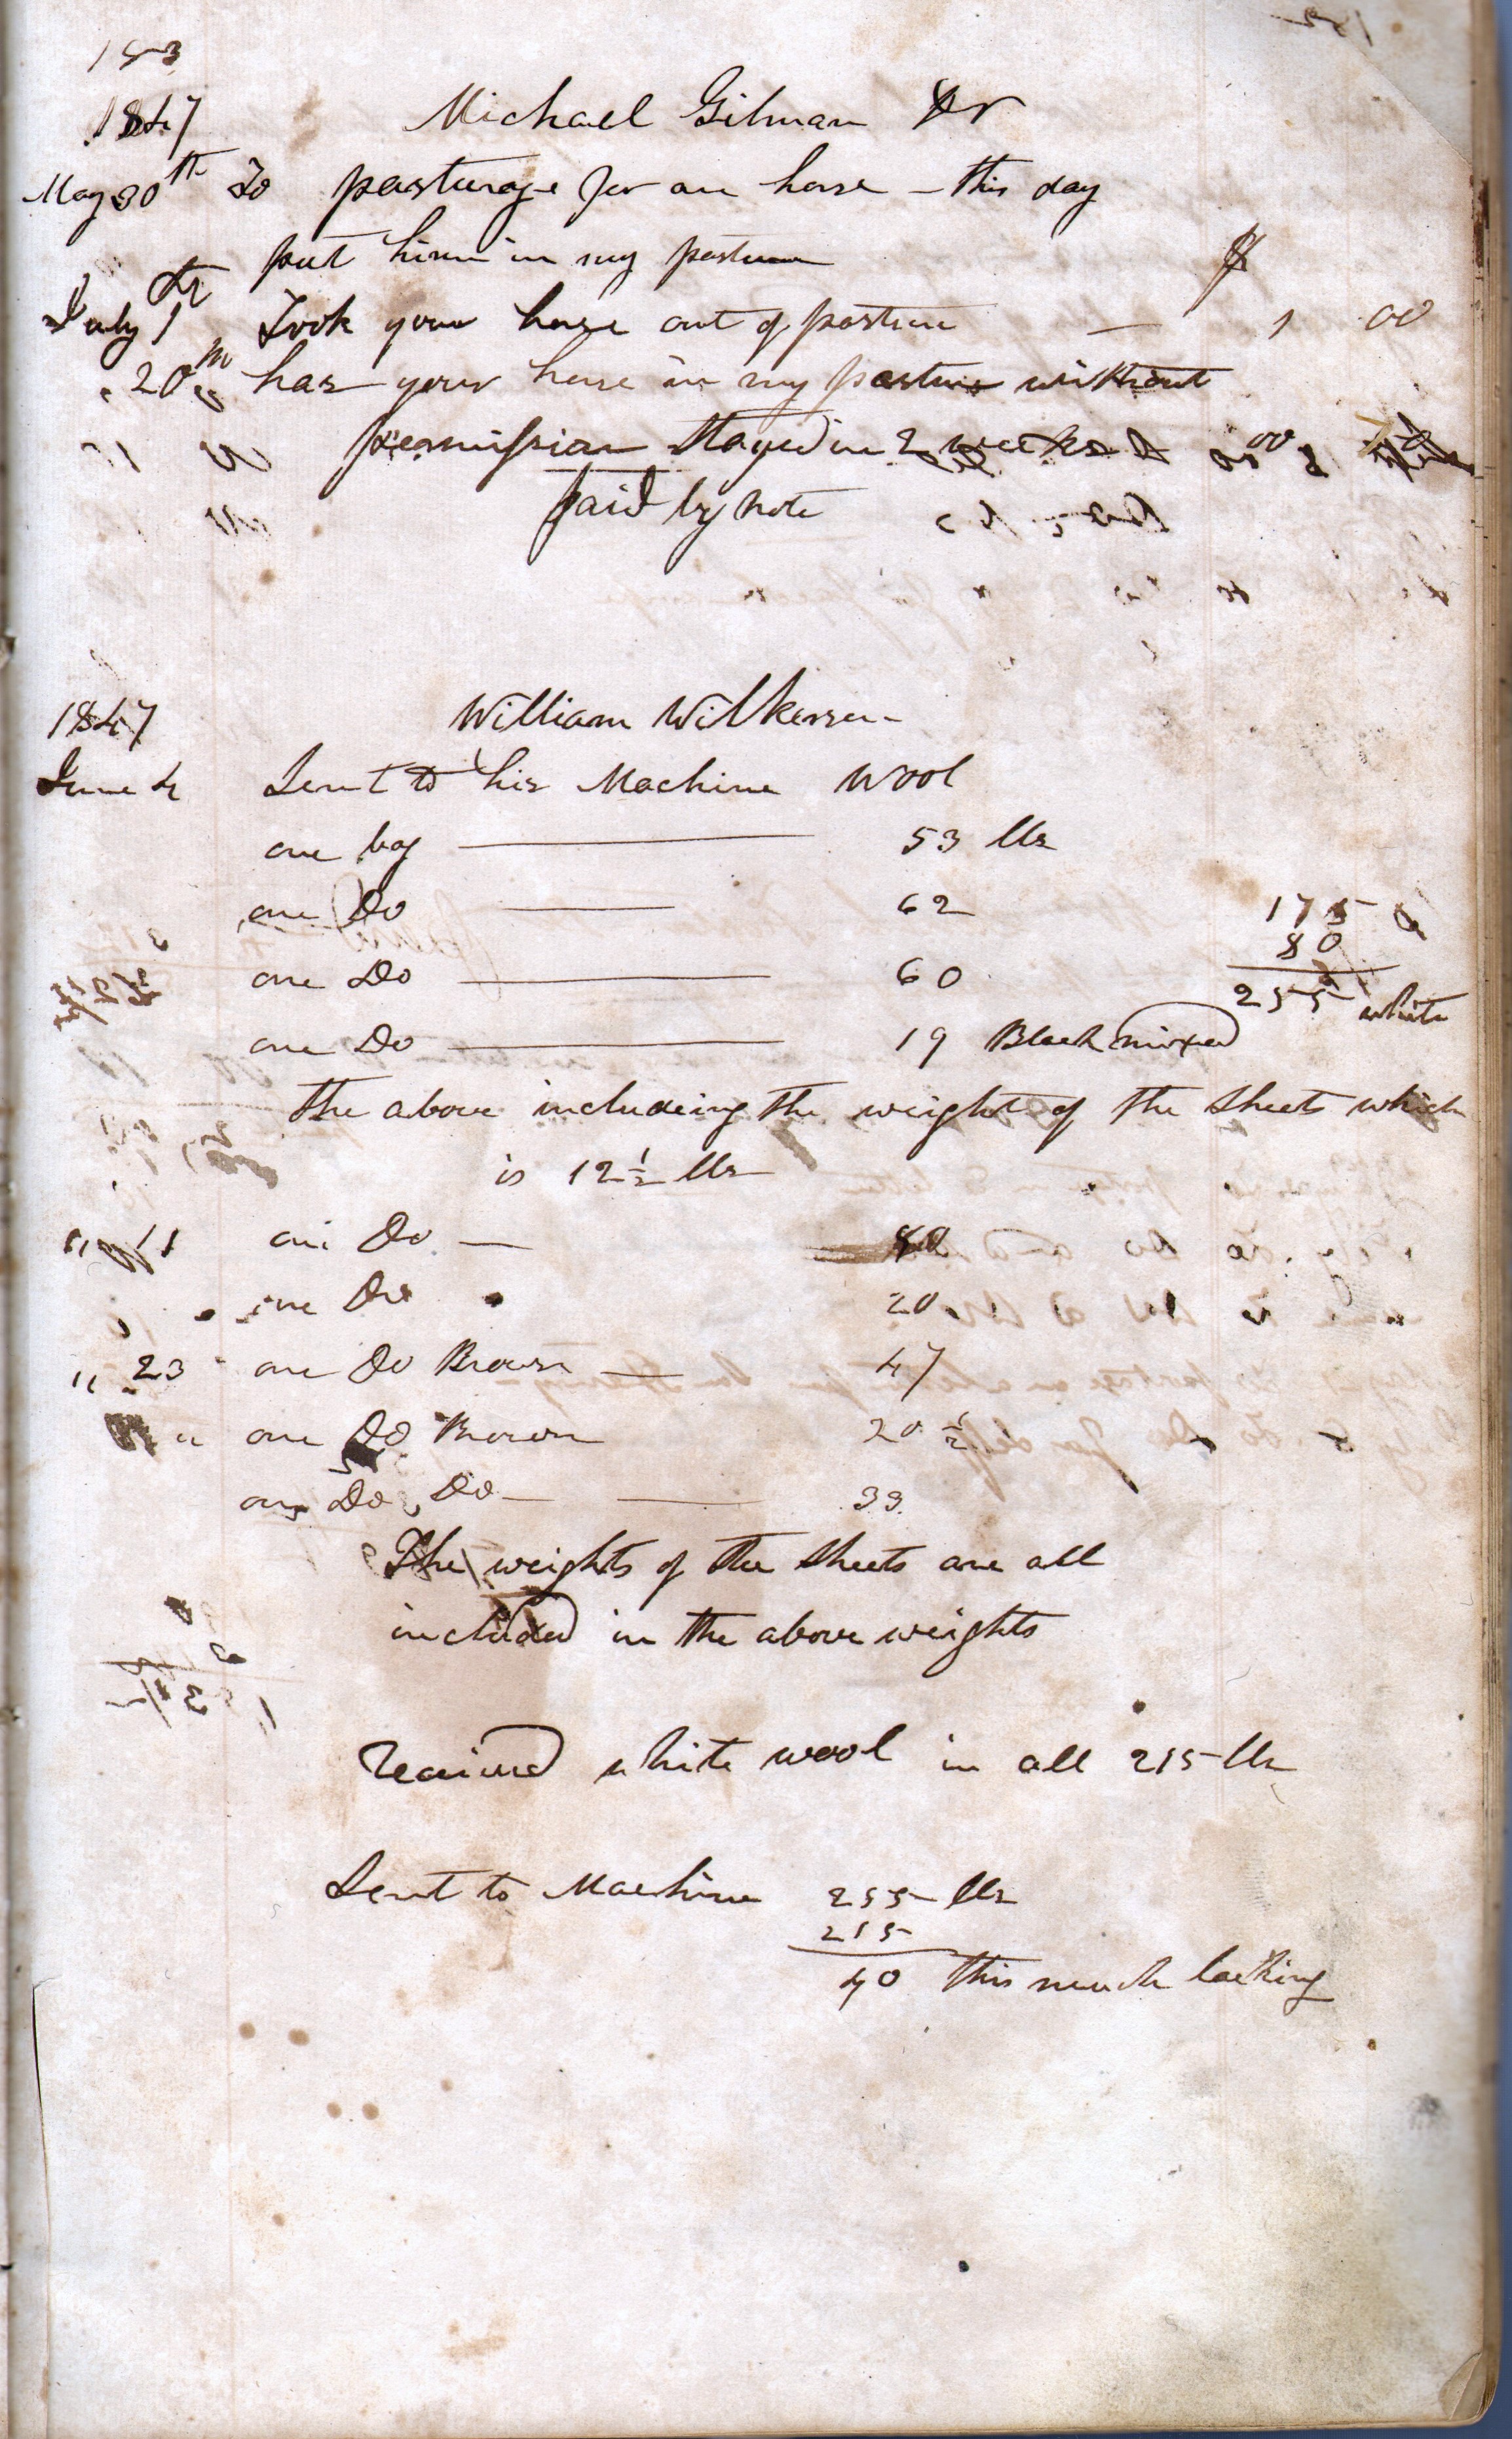 153
1847 Michael Gilman Dr
May 30th To pasturage for one horse – this day
put him in my pasture $
July 1 Took your horse out of pasture — 1 00
" 20th has your horse in my pasture without
permission stayed in 2 weeks
paid by note
1847 William Wilkerson
June 4 Sent to his Machine Wool
one bag — 53 lbs
one Do — 62
one Do — 60
175
80
255 white
one Do — 19 Black mixed
the above includeing the weight of the sheets which
is 12 1/2 lbs
" 11 one Do — 80
one Do 20
" 23 one Do Brown — 47
" one Do Brown 20 1/2
one Do Do — 33
The weights of the sheets are all
included in the above weights
received white wool in all 215 lbs
Sent to Machine 255 lbs
215
40 this much lacking